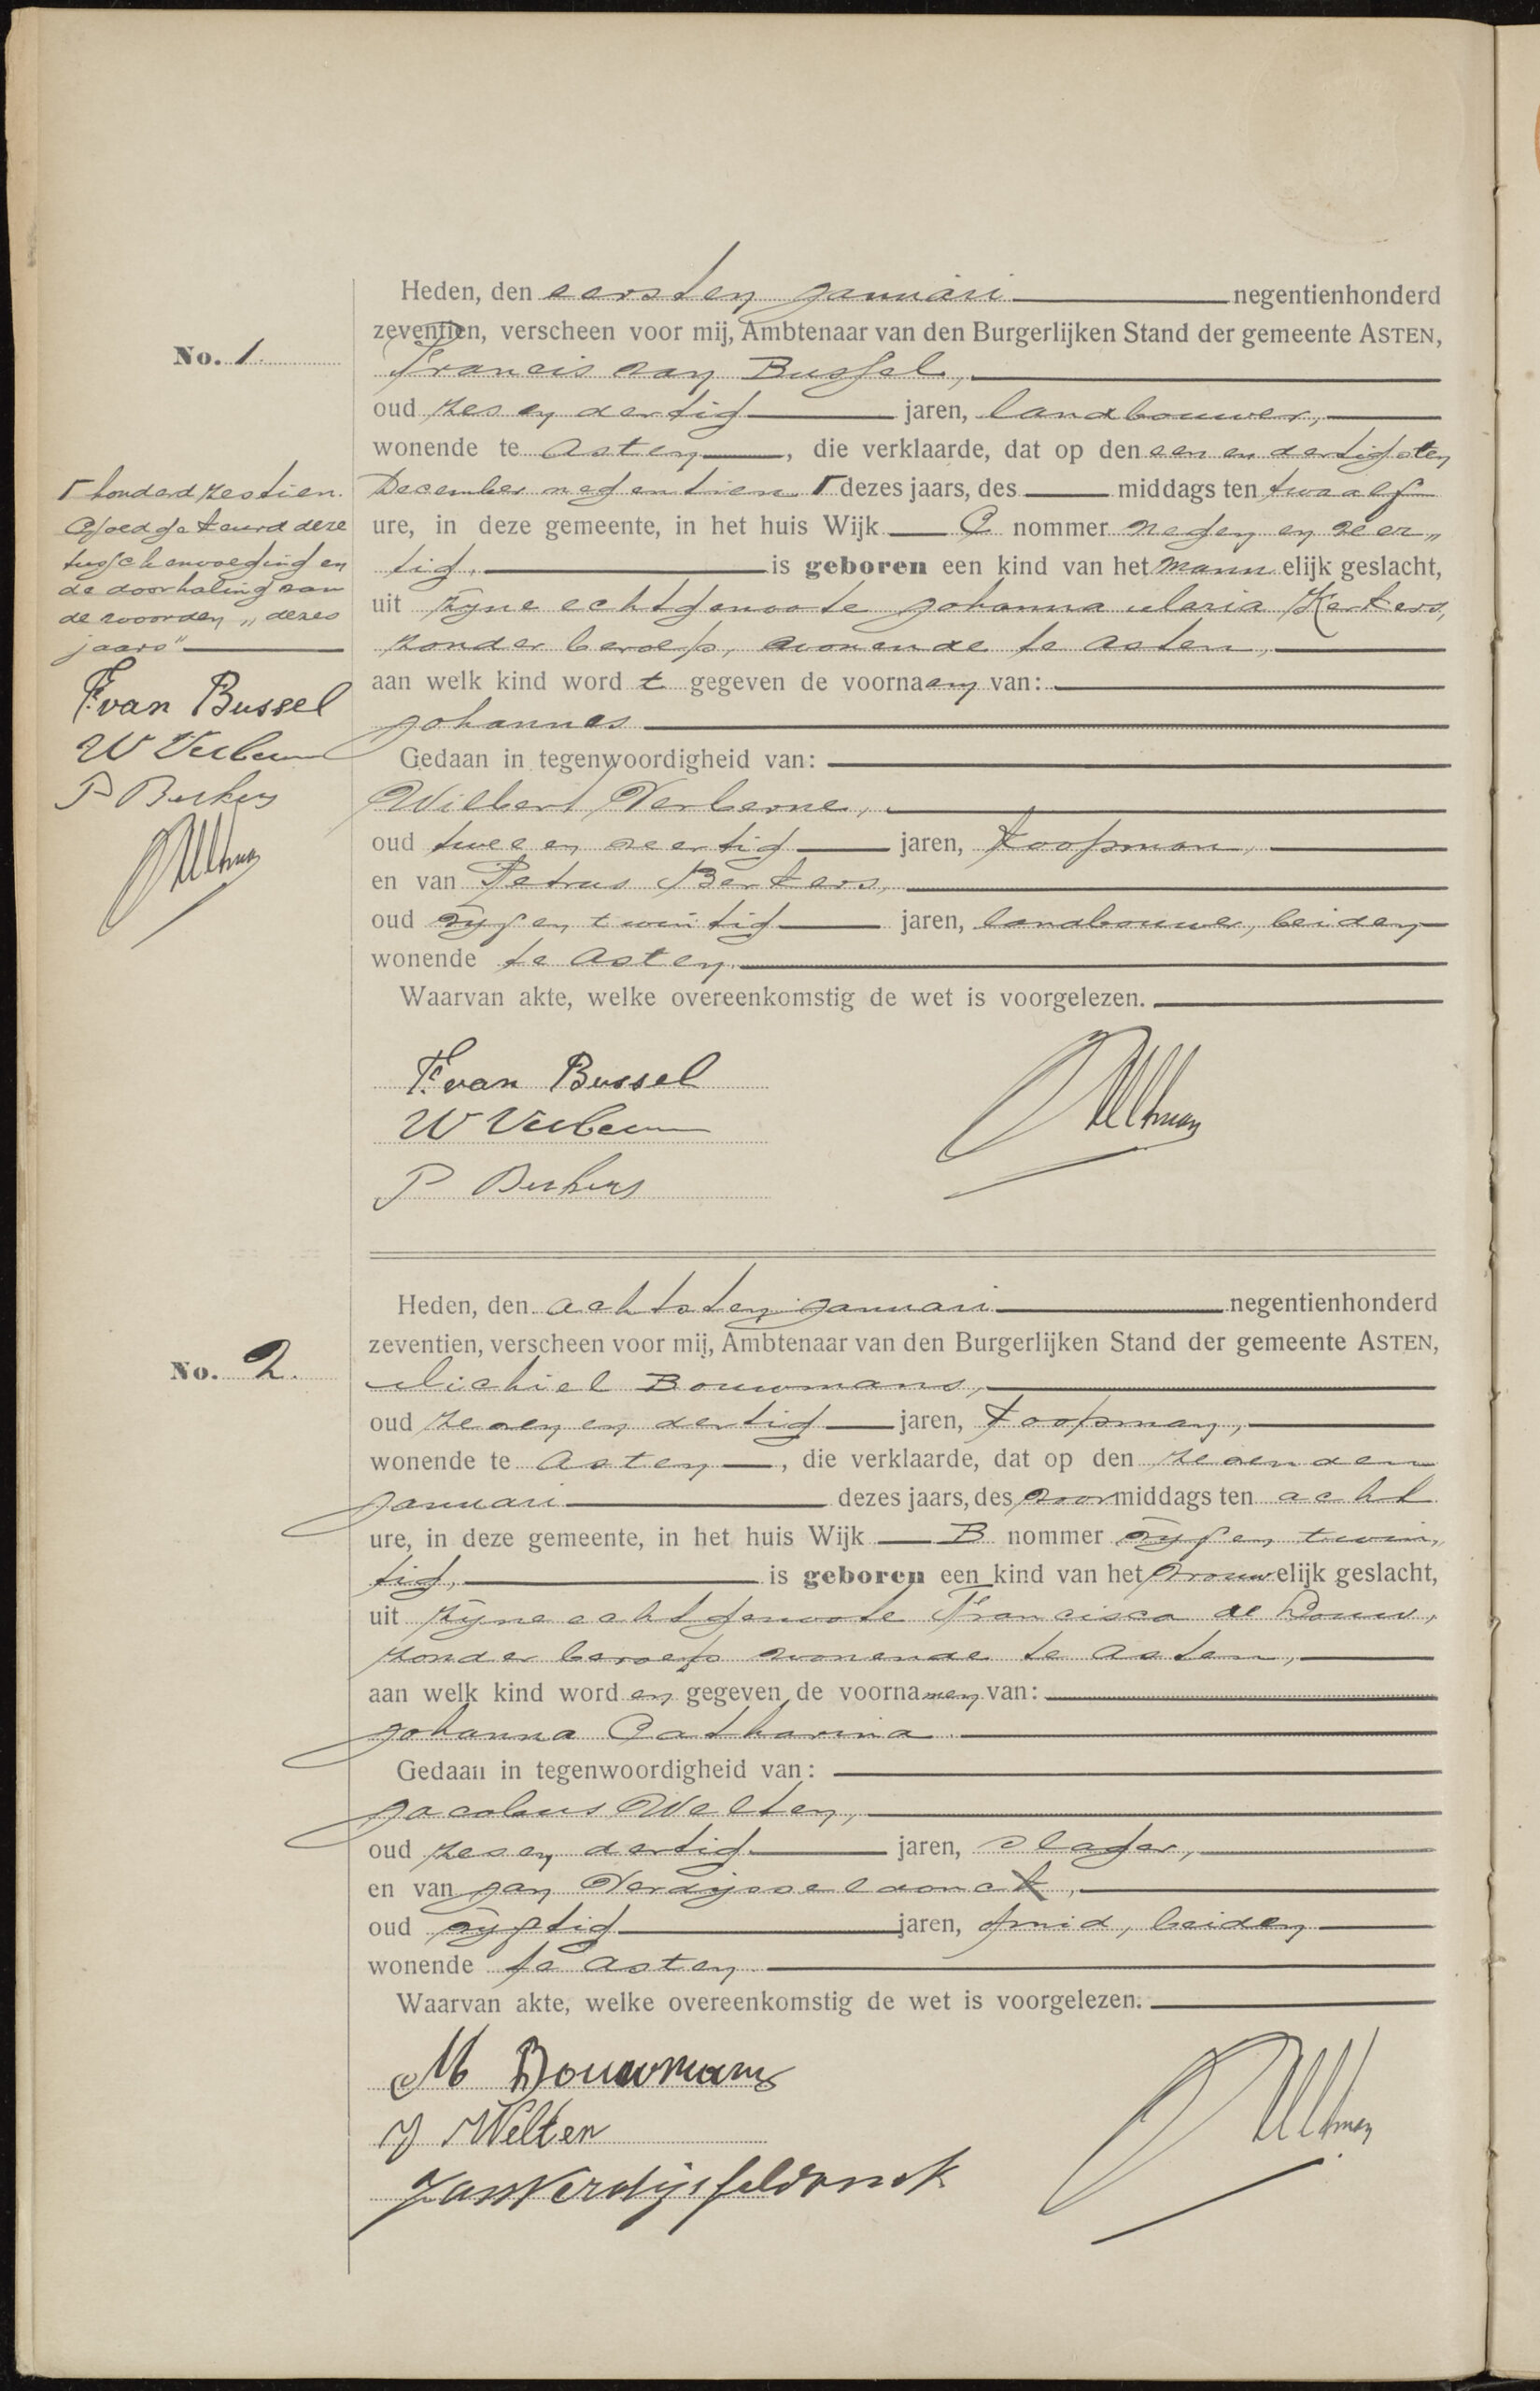 No. 1
Heden, den eersten Januari negentienhonderd
zeventien, verscheen voor mij, Ambtenaar van den Burgerlijken Stand der gemeente ASTEN,
Francis van Bussel,
oud zes en dertig jaren, landbouwer,
wonende te Asten, die verklaarde, dat op den een en dertigsten
December negentien ┌ dezes jaars, des middags ten twaalf
ure, in deze gemeente, in het huis Wijk C nommer negen en veer„
tig, is geboren een kind van het mannelijk geslacht,
uit zijne echtgenoote Johanna Maria Kerkers,
zonder beroep, wonende te Asten,
aan welk kind wordt gegeven de voornaam van:
Johannes
Gedaan in tegenwoordigheid van:
Wilbert Verberne,
oud twee en veertig jaren, koopman,
en van Petrus Berkers,
oud vijf en twintig jaren, landbouwer, beiden
wonende te Asten.
Waarvan akte, welke overeenkomstig de wet is voorgelezen.
┌ honderd zestien.
Goedgekeurd deze
tusschenvoeging en
de doorhaling van
de woorden „dezes
jaars"
F. van Bussel
W Verberne
P Berkers
F. van Bussel
W Verberne
P Berkers
No. 2.
Heden, den achtsten Januari negentienhonderd
zeventien, verscheen voor mij, Ambtenaar van den Burgerlijken Stand der gemeente ASTEN,
Michiel Bouwmans,
oud zeven en dertig jaren, koopman,
wonende te Asten, die verklaarde, dat op den zevenden
Januari dezes jaars, des voormiddags ten acht
ure, in deze gemeente, in het huis Wijk B nommer vijf en twin„
tig, is geboren een kind van het vrouwelijk geslacht,
uit zijne echtgenoote Francisca de Bouw,
zonder beroep wonende te Asten,
aan welk kind worden gegeven de voornamen van:
Johanna Catharina
Gedaan in tegenwoordigheid van:
Jacobus Welten,
oud zes en dertig jaren, slager,
en van Jan Verdijsseldonck,
oud vijftig jaren, smid, beiden
wonende te Asten.
Waarvan akte, welke overeenkomstig de wet is voorgelezen.
M Bouwmans
J Welten
Jan Verdijsseldonck